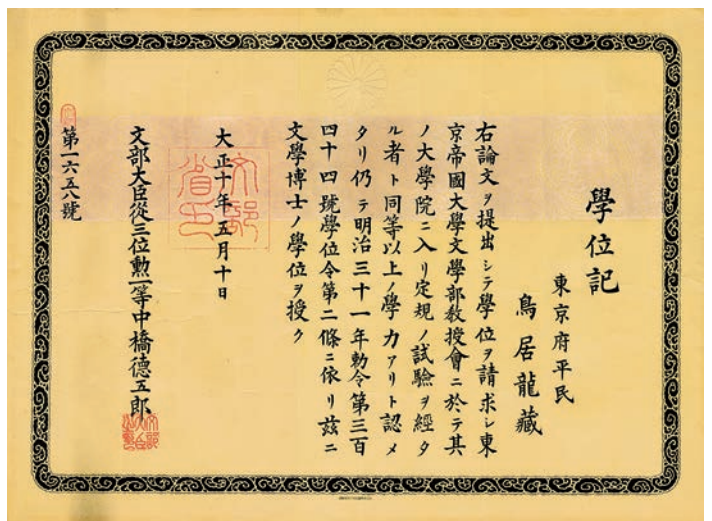 學位記
東京府平民
鳥居龍藏
右論文ヲ提出シテ學位ヲ請求シ東
京帝國大學文學部教授會ニ於テ其
ノ大學院ニ入リ定規ノ試驗ヲ經タ
ル者ト同等以上ノ學力アリト認メ
タリ仍テ明治三十一年勅令第三百
四十四號學位令第二條ニ依リ茲ニ
文學博士ノ學位ヲ授ク
大正十年五月十日
文部省印
文部大臣從三位勲一等中橋德五郎
第一六五八號